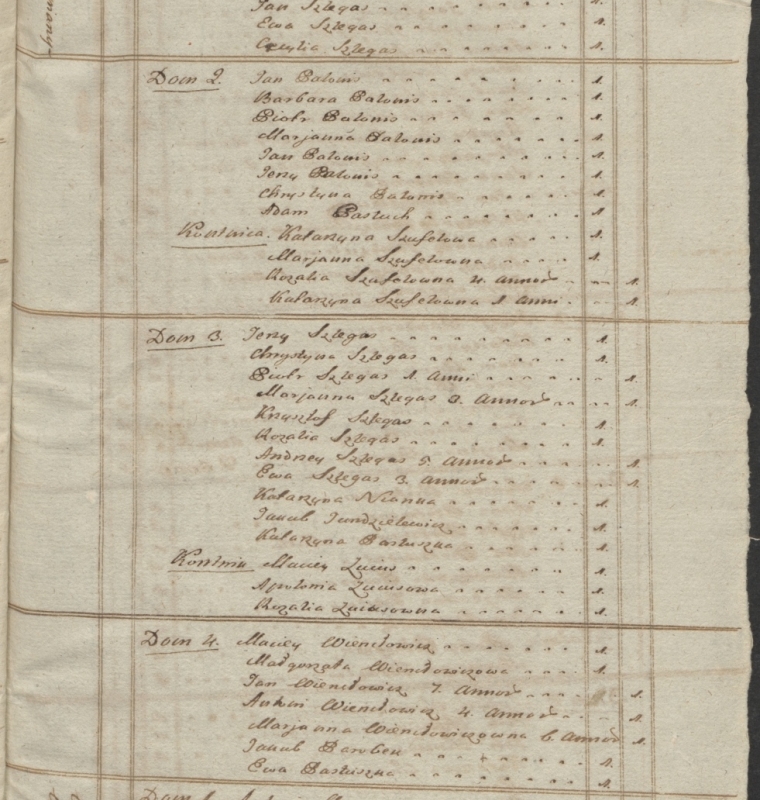 Jan Szlegas 1.
Ewa Szlegas 1.
Cecylia Szlegas 1.
Dom 2. Jan Balonis 1.
Barbara Balonis 1.
Piotr Balonis 1.
Marjanna Balonis 1.
Jan Balonis 1.
Jerzy Balonis 1.
Chrystyna Balonis 1.
Adam Pastuch 1.
Katarzyna Szufelowa 1.
Marjanna Szufelowna 1.
Rozalia Szufelowna 4. Annor 1.
Katarzyna Szufelowna 1 Anni 1.
Dom 3. Jerzy Szlegas 1.
Chrystyna Szlegas 1.
Piotr Szlegas 1. Anni 1.
Marjanna Szlegas 3. Annor 1.
Krzysztof Szlegas 1.
Rozalia Szlegas 1.
Andrzey Szlegas 5. Annor 1.
Ewa Szlegas 3. Annor 1.
Katarzyna 1.
Jakub Jundziłowicz 1.
Katarzyna Pastuszka 1.
Maciey 1.
Apolonia 1.
Rozalia 1.
Dom 4. Maciey Wienclowicz 1.
Małgorzata Wienclowiczowa 1.
Jan Wienclowicz 7. Annor 1.
Antoni Wienclowicz 4. Annor 1.
Marjanna Wienclowiczowna 6. Annor 1.
Jakub Parobek 1.
Ewa Pastuszka 1.